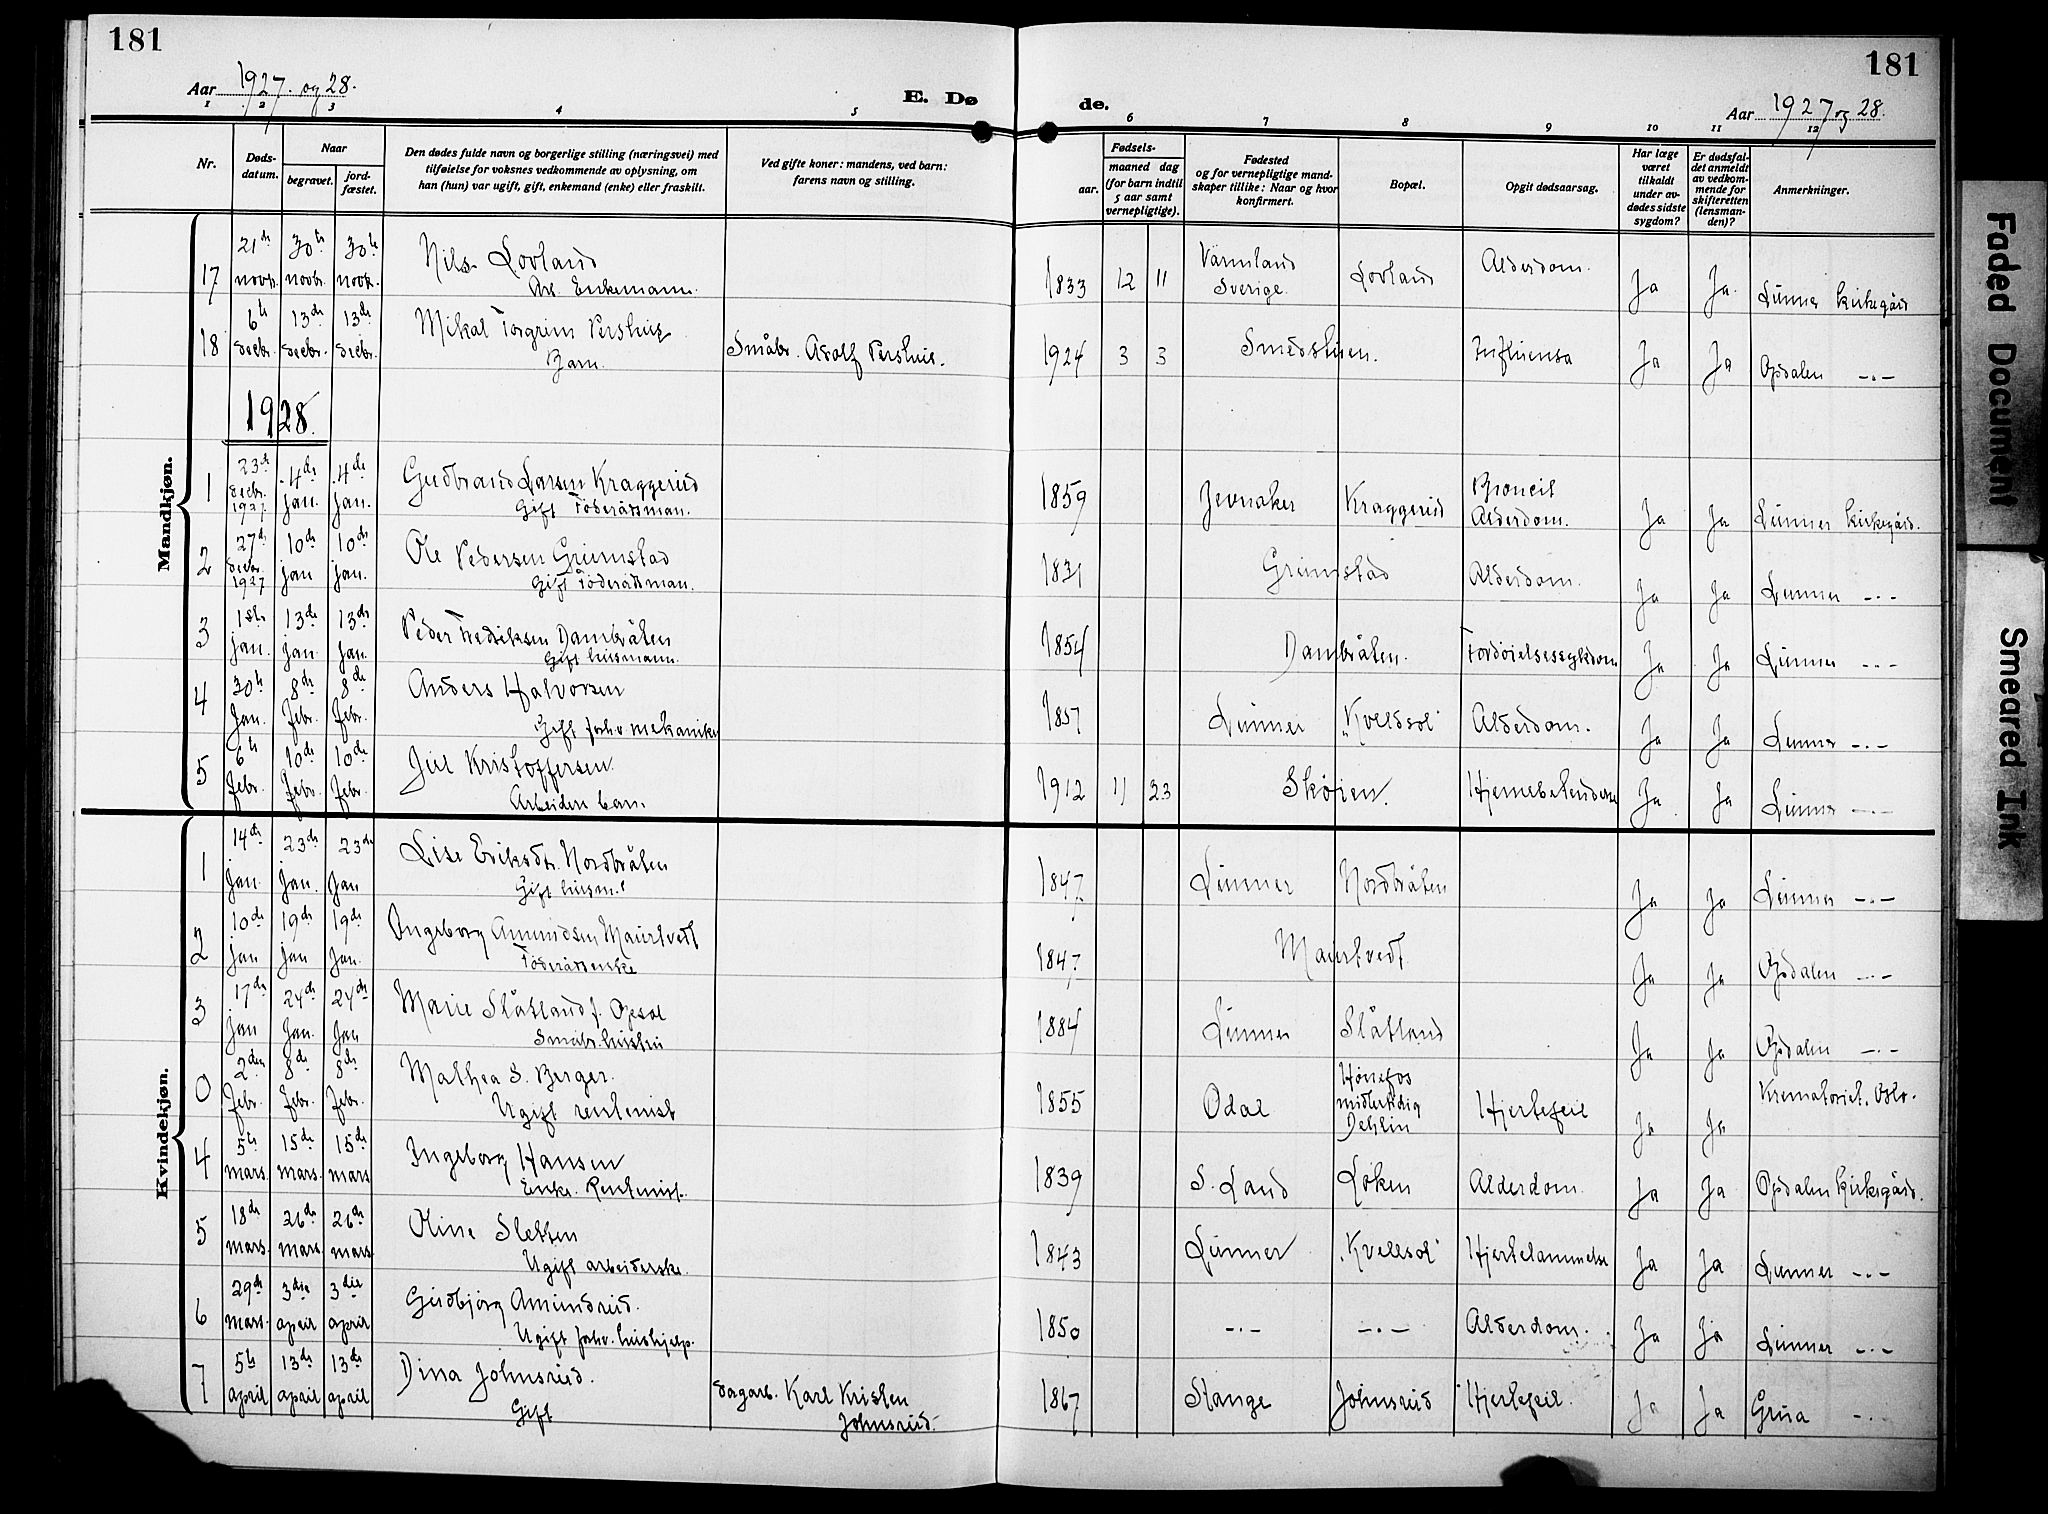 181
181
Aar 1927. og 28.
E. Døde.
Aar 1927 og 28.
1 2 3 4 5 6 7 8 9 10 11 12
Nr.
Døds-
datum.
Naar
begravet.
jord-
fæstet.
Den dødes fulde navn og borgerlige stilling (næringsvei) med
tilføielse for voksnes vedkommende av oplysning, om
han (hun) var ugift, gift, enkemand (enke) eller fraskilt.
Ved gifte koner: mandens, ved barn:
farens navn og stilling.
Fødsels-
aar.
maaned dag
(for barn indtil
5 aar samt
vernepligtige).
Fødested
og for vernepligtige mand-
skaper tillike: Naar og hvor
konfirmert.
Bopæl.
Opgit dødsaarsag.
Har læge
været
tilkaldt
under av-
dødes sidste
sygdom?
Er dødsfal-
det anmeldt
av vedkom-
mende for
skifteretten
(lensman-
den)?
Anmerkninger.
Mandkjøn.
17 21de novbr. 30te novbr. 30te novbr. Nils Lovland Arb. Enkemann. 1833 12 11 Värmland Sverige. Lovland Alderdom. Ja Ja Lunner kirkegård
18 6te decbr. 13de decbr. 13de decbr. Mikal Torgrim Pershus Barn. Småbr. Adolf Pershus. 1924 3 3 Smedshuen. Influensa Ja Ja Opdalen -"-
1928.
1 23de decbr. 1927. 4de jan. 4de jan. Gudbrand Larsen Kraggerud Gift Föderådsman. 1859 Jevnaker Kraggerud Broncit Alderdom. Ja Ja Lunner kirkegård.
2 27de decbr. 1927 10de jan 10de jan. Ole Pedersen Grimstad Gift Föderådsman. 1831 Grimstad Alderdom. Ja Ja Lunner -"-
3 1ste jan. 13de jan. 13de jan. Peder Fredriksen Dambråten Gift husmann. 1854 Dambråten. Fordøielsessykdom Ja Ja Lunner -"-
4 30te Jan. 8de Febr. 8de Febr. Anders Halvorsen Gift forhv. mekaniker 1851 Lunner "Kveldsol" Alderdom. Ja Ja Lunner -"-
5 6te Febr. 10de Febr. 10de Febr. Jul Kristoffersen. Arbeider barn. 1912 11 23 Skøien. Hjernebetendelse Ja Ja Lunner -"-
Kvindekjøn.
1 14de jan. 23de Jan. 23de Jan Lise Eriksdtr. Nordbråten Gift husm. 1847 Lunner Nordbråten Ja Ja Lunner -"-
2 10de jan 19de jan 19de Jan. Ingeborg Amundsen Maurtvedt Föderåderske 1847 Maurtvedt Ja Ja Opdalen -"-
3 17de jan 24de Jan. 24de Jan Marie Slåtland f. Opsal Småbr. hustru 1884 Lunner Slåtland Ja Ja Opdalen -"-
0 2den Febr. 8de Febr. 8de Febr. Mathea S. Berger. Ugift rentenist 1855 Odal Hønefos midlertidig Dehlin Hjertefeil Ja Ja Krematoriet. Oslo.
4 5te mars. 15de mars. 15de mars Ingeborg Hansen Enke. Rentenist. 1839 S. Land Løken Alderdom. Ja Ja Opdalen kirkegård.
5 18de mars. 26de mars. 26de mars Oline Sletten Ugift arbeiderske. 1843 Lunner "Kvellsol" Hjertelammelse Ja Ja Lunner -"-
6 29de mars. 3die april 3die april Gudbjørg Amundrud. Ugift forhv. hushjelp. 1850 -"- -"- Alderdom. Ja Ja Lunner -"-
7 5te april 13de april 13de april Dina Johnsrud. Gift dagarb. Karl Kristen Johnsrud. 1867 Stange Johnsrud Hjertefeil. Ja Ja Grua -"-
Faded Document
Smeared Ink